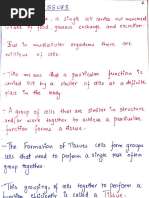 TISSUES
a single cell carries out movement
intake of food, gaseous exchange and excretion
- But in multicellular organisms there are
millions of cells.
- This means that a particular function is
carried out by a cluster of cells at a definite
place in the body.
- A group of cells that are similar in structure
and/or work together to achieve a particular
function forms a tissue.
- The Formation of Tissues cells form groups
cells that need to perform a single task often
group together.
- This grouping of cells together to perform a
function efficiently is called a Tissue.